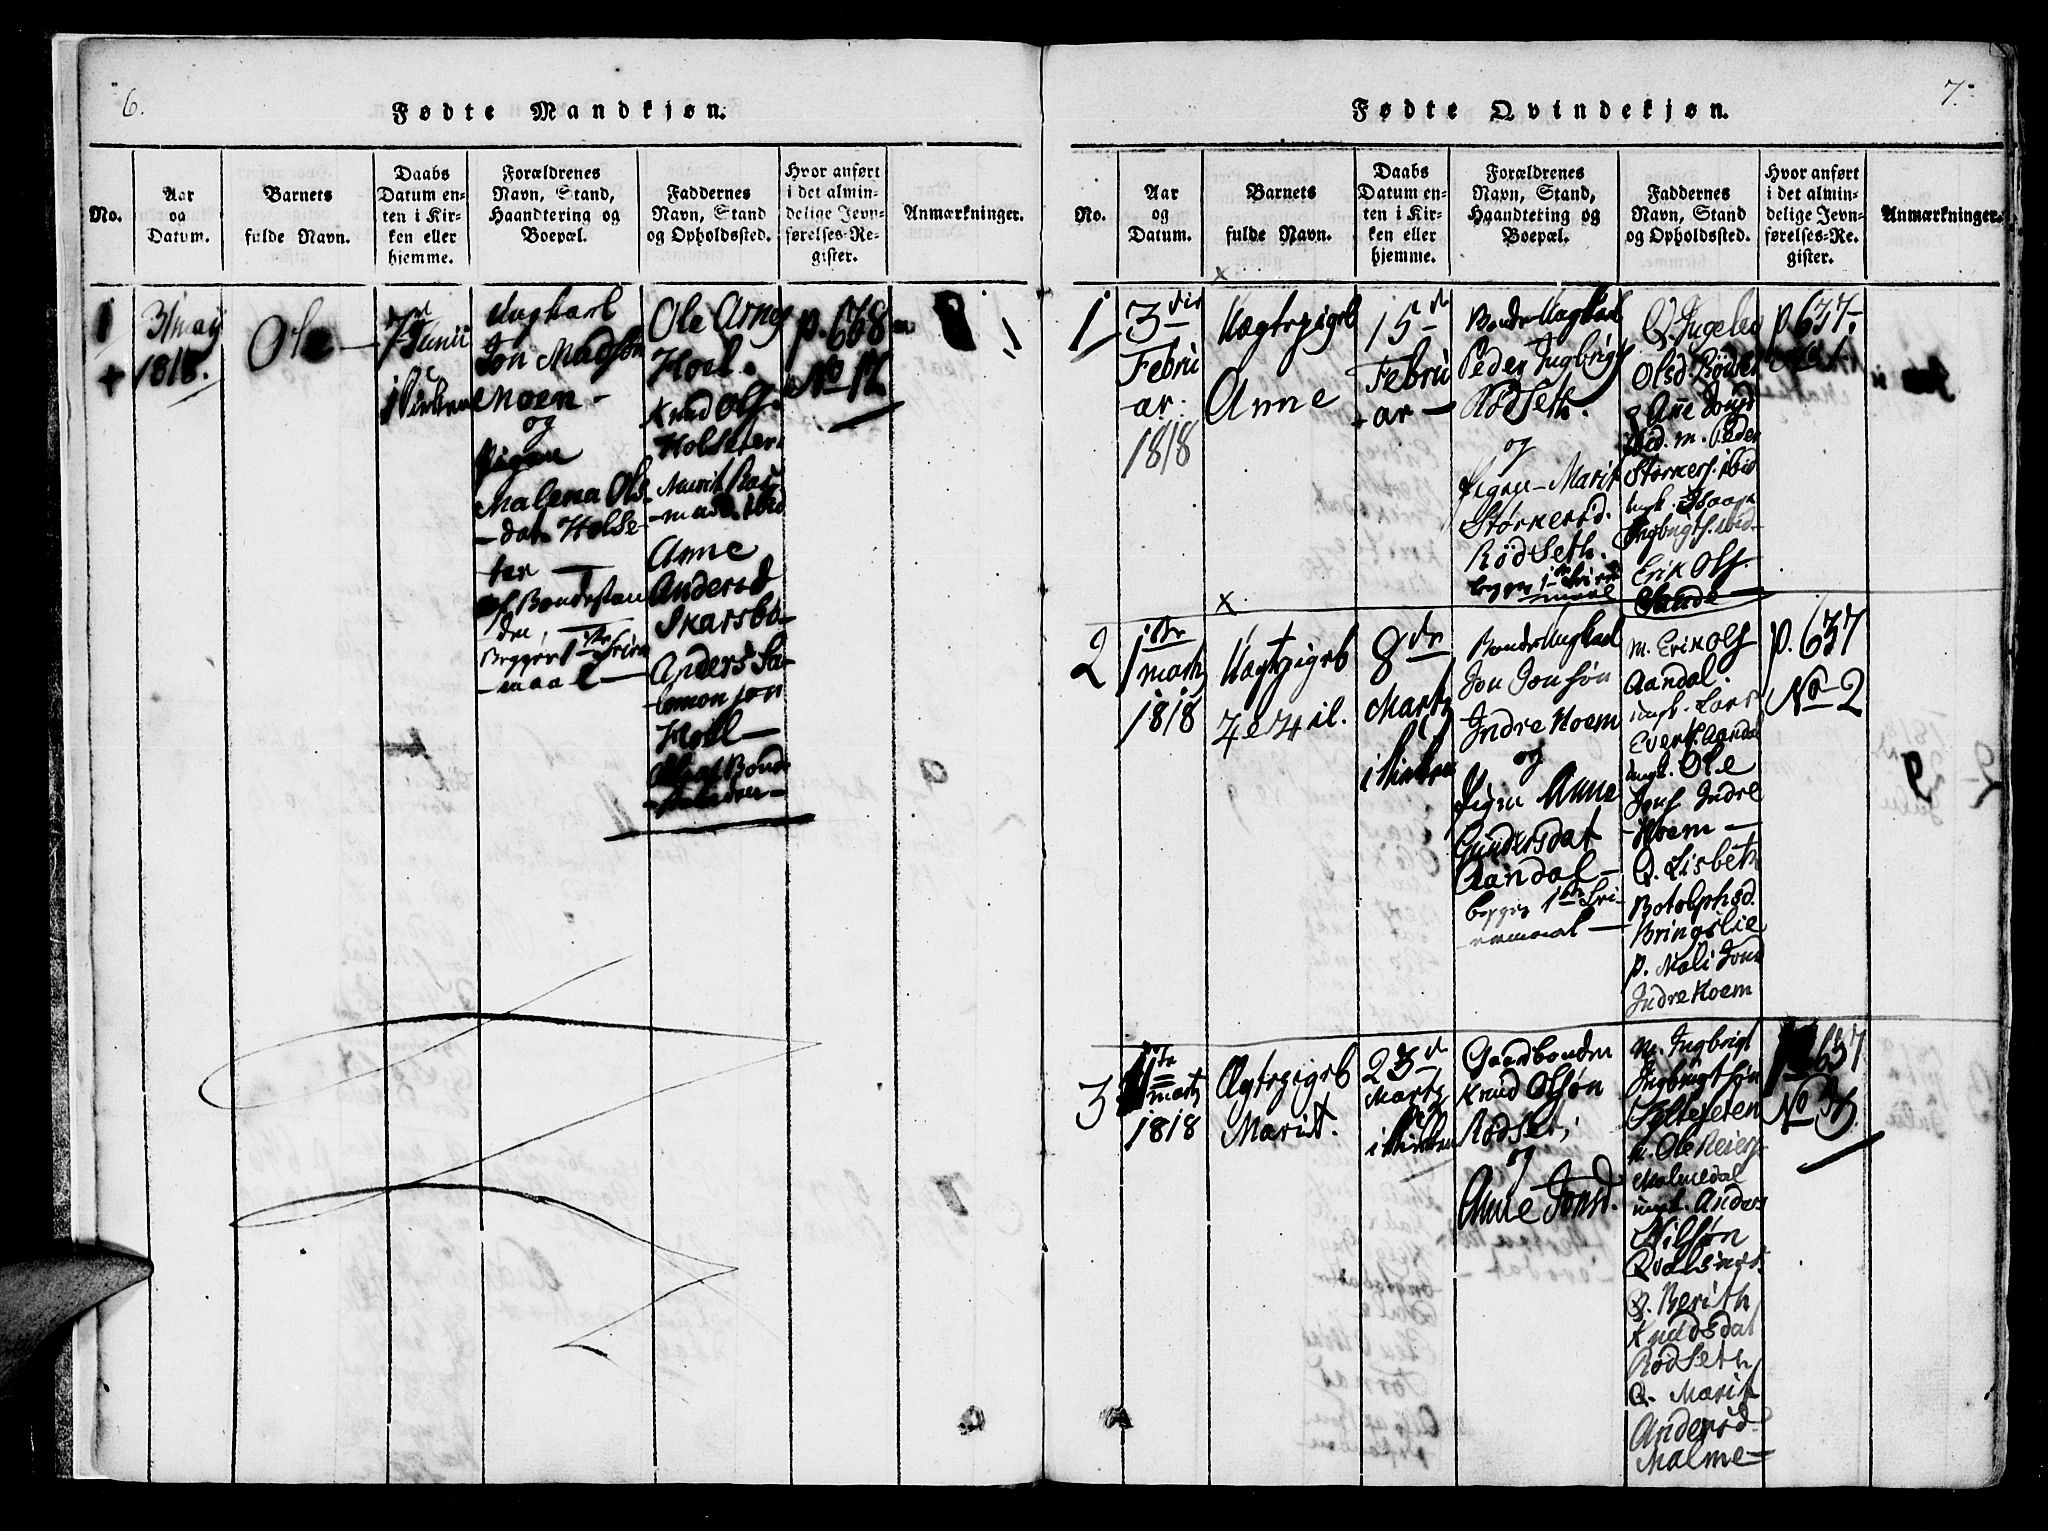 6.
Fødte Mandkjøn.
No.
Aar
og
Datum.
Barnets
fulde Navn.
Daabs
Datum en-
ten i Kir-
ken eller
hjemme.
Forældrenes
Navn, Stand,
Haandtering og
Boepæl.
Faddernes
Navn, Stand
og Opholdssted.
Hvor anført
i det almin-
delige Jevn-
førelses-Re-
gister.
Anmærkninger.
1
31 may
1818.
Ole
7de Junii
i Kirken
Ungkarl
Jon Madsøn
Moen
og
Pigen
Malena Ols
dat Holse
ter
af Bondestan
den,
Begges 1ste Leier
maal
Ole Arns
Hoel.
Knud Ols.
Holseter
Marit Ras
musd. ibid
Anne
Andersd
Skarsbo
Anders Sa-
lomonsøn
Hoel
p. 638
No 12
7.
Fødte Qvindekjøn.
No.
Aar
og
Datum.
Barnets
fulde Navn.
Daabs
Datum en-
ten i Kir-
ken eller
hjemme.
Forældrenes
Navn, Stand,
Haandtering og
Boepæl.
Faddernes
Navn, Stand
og Opholdssted.
Hvor anført
i det almin-
delige Jevn-
førelses-Re-
gister.
Anmærkninger.
x
1
3die
Febru
ar.
1818
Uægtepigeb
Anne
15de
Febru
ar
Bonde Ungkarl
Peder Ingbrigts
Rødseth.
og
Pigen Marit
Størkersd.
Rødseth.
begges 1ste Leier
maal
Q. Ingeleo
Olsd Rødset
p Ane Jonsd
ibid. m. Peder
Størkers. ibid
ungk. Isaach
Ingbrigts. ibid
Erik Ols.
Sande
p. 637.
No 1.
x
2
1ste
martz
1818
Uægtpigeb
Zezil.
8de
Martz
i Kirken
Bonde Ungkarl
Jon Jonsøn
Indre Hoem
og
Pigen Anne
Gundersdat
Aandal
begges 1ste Lei-
ermaal
m. Erik Ols
Aandal.
ungk. Lars
Everts. Aandal
ungk. Ole
Jons Indre
Hoem
Q. Lisbeth
Botolphsd.
Bringslie
p. Mali Jons
Indre Hoem
p. 637
No 2
3
martz
1818
Ægtepigeb
Marit.
23de
Martz
i Kirken
Gaardbonden
Knud Olsøn
Rødset,
og
Anne Jonsd.
m. Ingbrigt
Ingbrigtsøn
Sylteseten
m. Ole Reiers
Malmedal
ungk. Anders
Nilsøn
Qvalsnæs
Q. Berith
Knudsdat
Rødseth
Q. Marit
Andersd
Malme
637
No 3